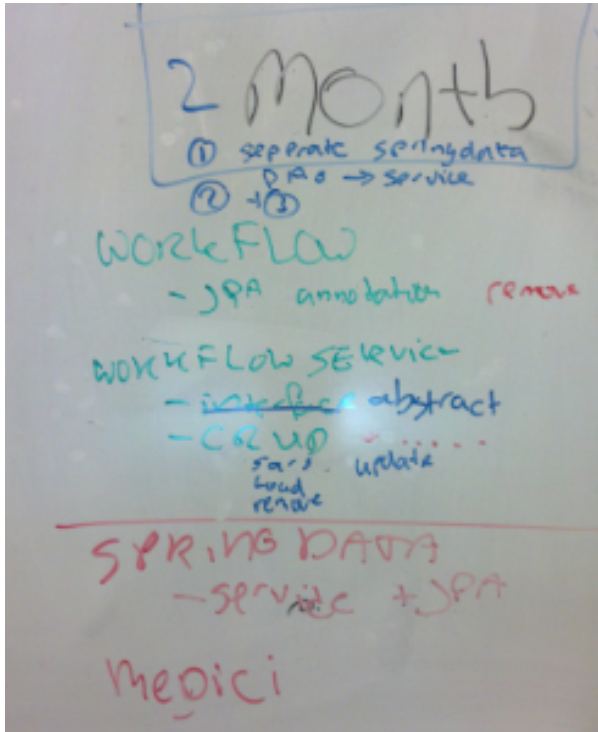 2 month
① seperate springdata
DAO → service
② + ③
WORKFLOW
- JPA annotation remove
WORKFLOW SERVICE
- interface abstract
- CRUD
save update
load
remove
SPRING DATA
- service + JPA
MEDICI